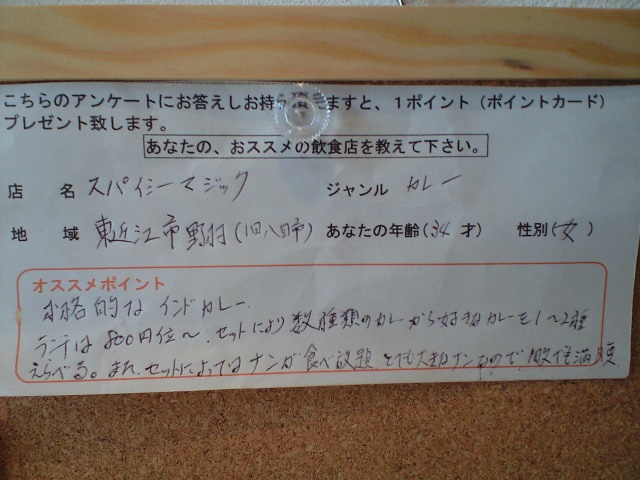 こちらのアンケートにお答えしお持ち頂きますと、1ポイント（ポイントカード）
プレゼント致します。
あなたの、おススメの飲食店を教えて下さい。
店 名 スパイシーマジック ジャンル カレー
地 域 東近江市野村（旧八日市） あなたの年齢（34 才） 性別（女 ）
オススメポイント
本格的な インドカレー。
ランチは 800円位～、セットにより数種類のカレーから好きなカレーを1～2種
えらべる。また、セットによってはナンが食べ放題 とても大きなナンなので、腹も満腹